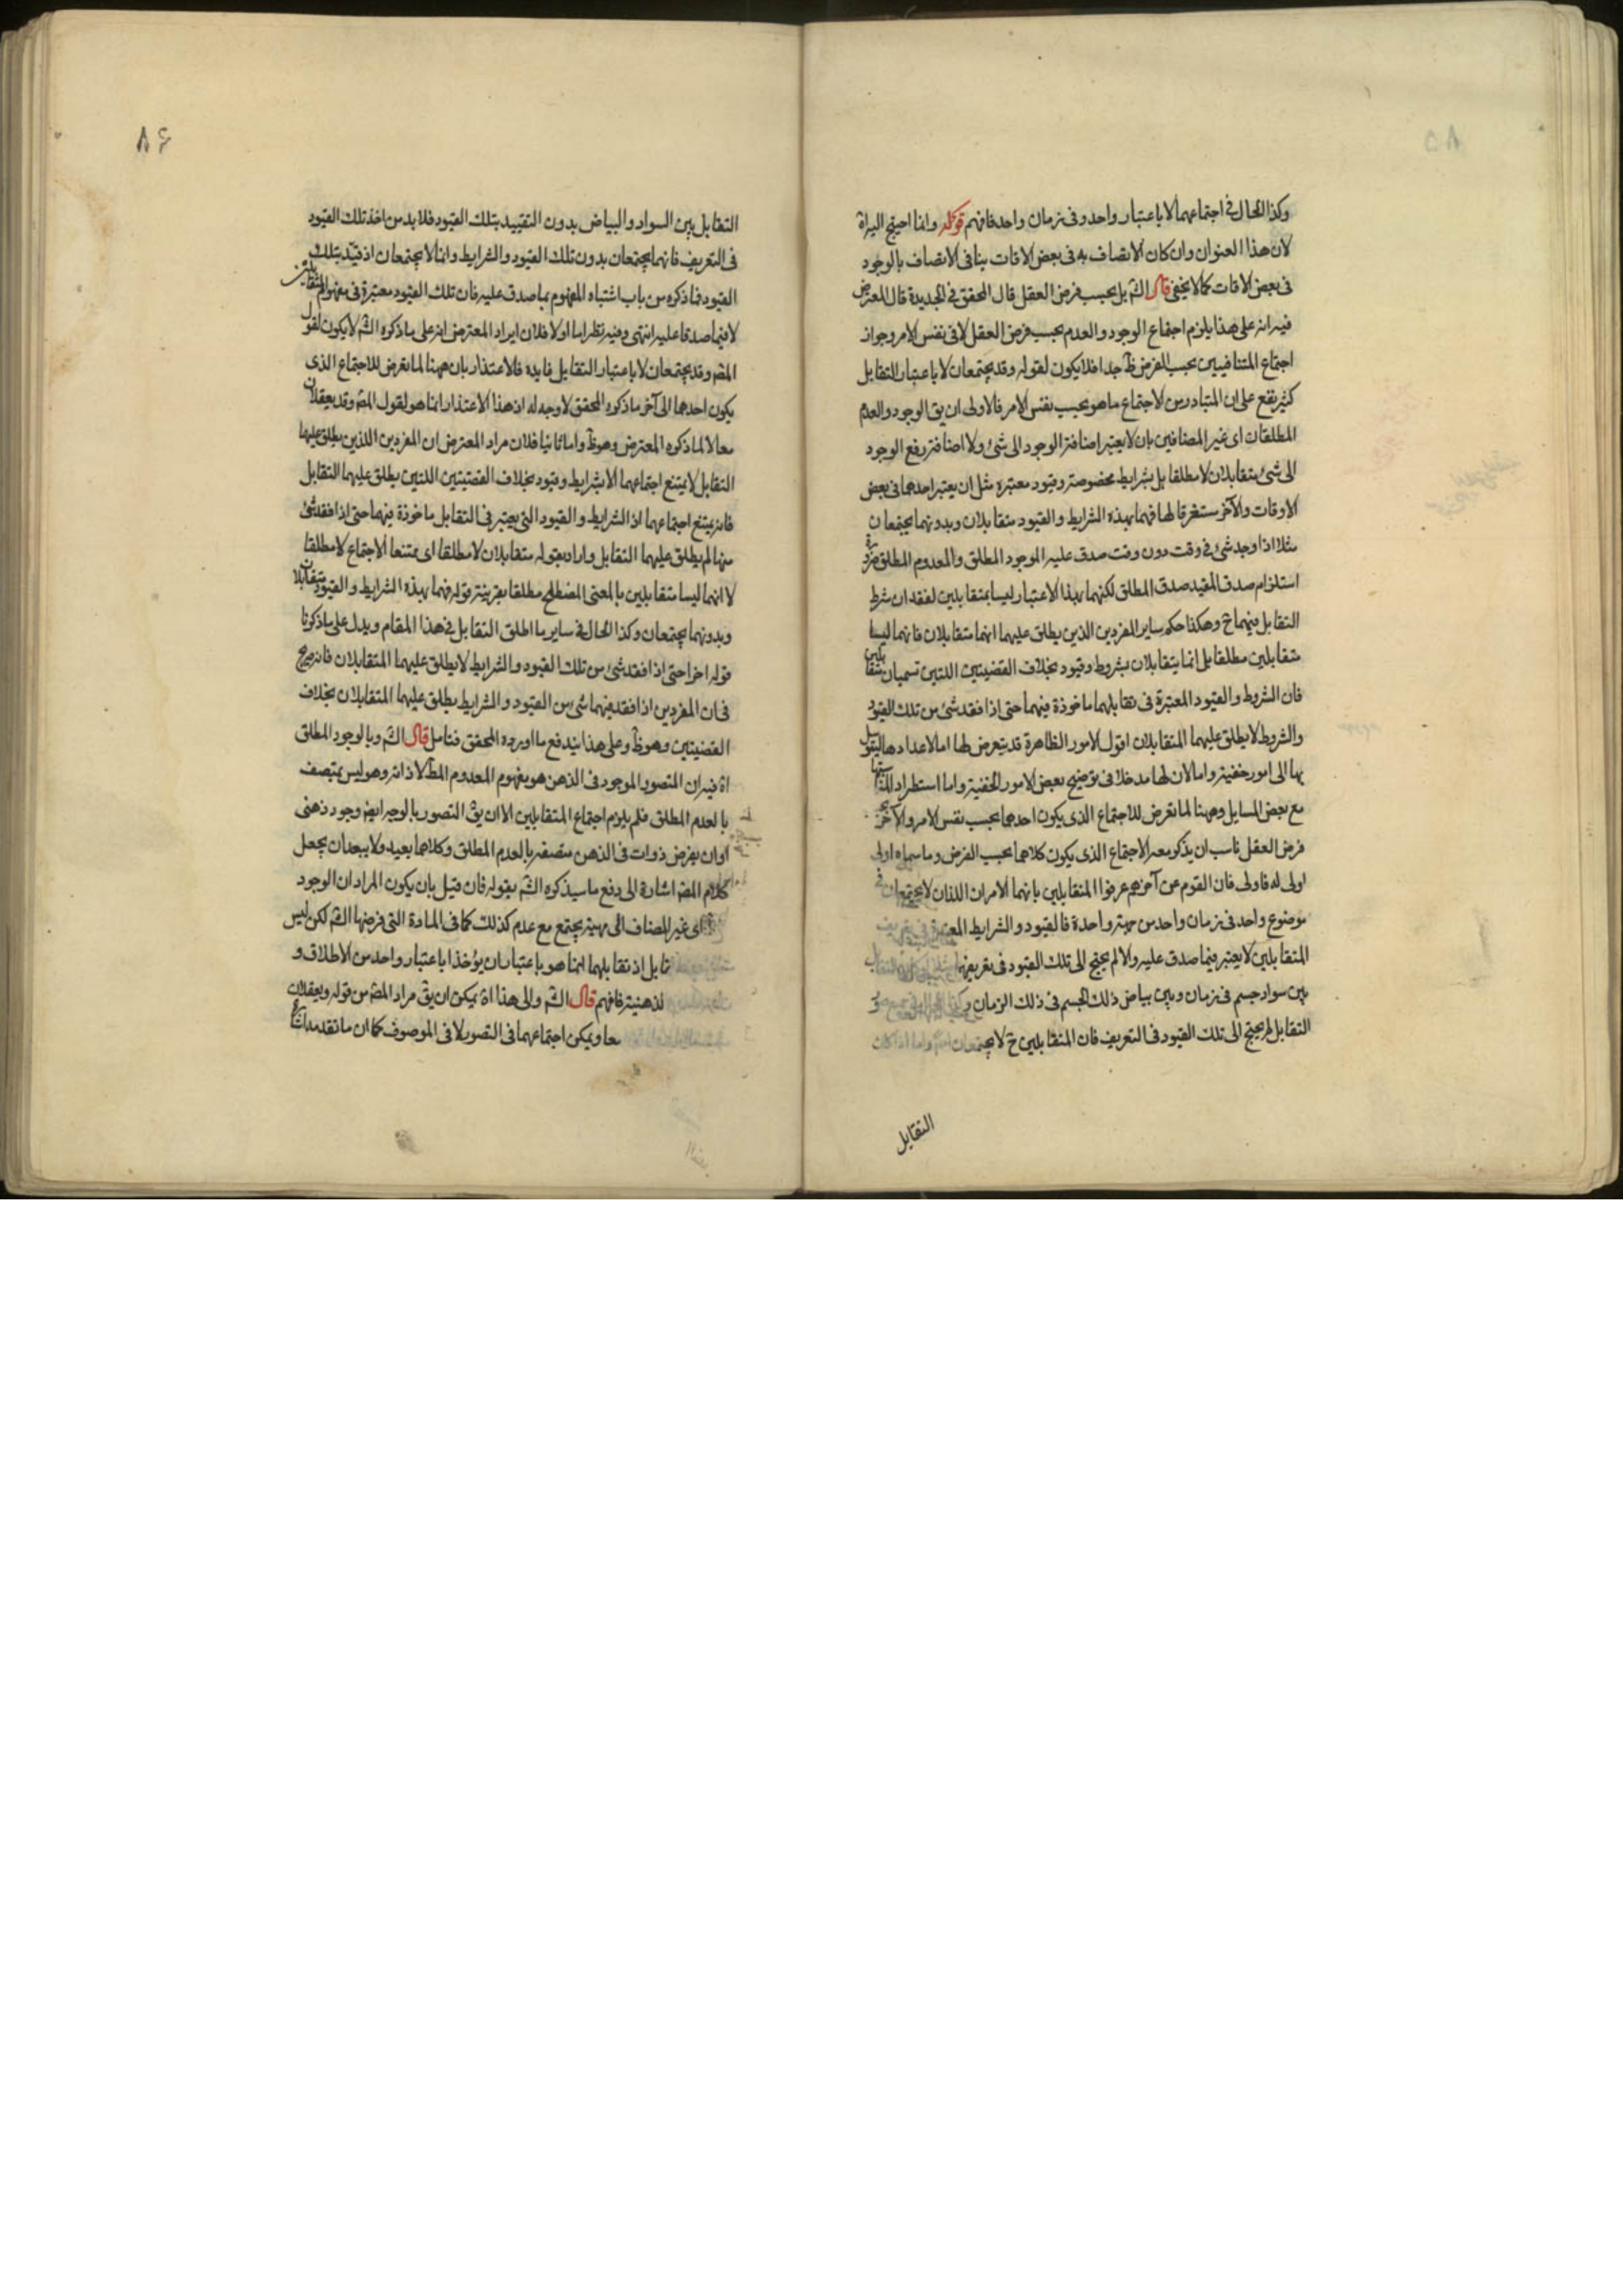 وكذا الحال في اجتماعهما لا باعتبار واحد وفي زمان واحد فافهم قوله وانما احتيج اليه اه
لان هذا العنوان وان كان الاتصاف به في بعض الاقات ينافي الاتصاف بالوجود
في بعض الاقات كما لا يخفى قال الش بل بحسب فرض العقل قال المحقق في الجديدة قال المعترض
فيه انه على هذا يلزم اجتماع الوجود والعدم بحسب فرض العقل لا في نفس الامر وجواز
اجتماع المتنافيين بحسب الفرض ظ جدا فلا يكون لقوله وقد يجتمعان لا باعتبار التقابل
كثير نفع على ان المتبادر من الاجتماع ما هو بحسب نفس الامر فالاولى ان يق الوجود والعدم
المطلقان اى غير المضافين بان لا يعتبر اضافة الوجود الى شئ ولا اضافة رفع الوجود
الى شئ متقابلان لا مطلقا بل بشرايط مخصوصة وقيود معتبره مثل ان يعتبر احدهما في بعض
الاوقات والآخر مستغرقا لها فهما بهذه الشرايط والقيود متقابلان وبدونهما يجتمعان
مثلا اذا وجد شئ في وقت دون وقت صدق عليه الموجود المطلق والمعدوم المطلق ضرورة
استلزام صدق المقيد صدق المطلق لكنهما بهذا الاعتبار ليسا بمتقابلين لفقدان شرط
التقابل فيهما ح وهكذا حكم ساير المفردين الذين يطلق عليهما انهما متقابلان فانهما ليسا
متقابلين مطلقا بل انما يتقابلان بشروط وقيود بخلاف القضيتين اللتين تسميان متقابلين
فان الشروط والقيود المعتبرة في تقابلهما ماخوذة فيهما حتى اذا فقد شئ من تلك القيود
والشروط لا يطلق عليهما المتقابلان اقول الامور الظاهرة قد يتعرض لها اما لاعدادها ليتوسل
بها الى امور خفية واما لان لها مدخلا في توضيح بعض الامور الخفية واما استطرادا لمناسبتها
مع بعض المسايل وههنا لما تعرض للاجتماع الذى يكون احدهما بحسب نفس الامر والآخر بحسب
فرض العقل ناسب ان يذكر معه الاجتماع الذى يكون كلاهما بحسب الفرض وما سماه اولى
اولى له فاولى فان القوم عن آخرهم عرفوا المتقابلين بانهما الامران اللذان لا يجتمعان في
موضوع واحد في زمان واحد من جهة واحدة فالقيود والشرايط المعتبرة في تعريف
المتقابلين لا يعتبر فيما صدق عليه والا لم يحتج الى تلك القيود في تعريفها
بين سواد جسم في زمان وبين بياض ذلك الجسم في ذلك الزمان
التقابل لم يحتج الى تلك القيود في التعريف فان المتقابلين ح لا يجتمعان
التقابل
التقابل بين السواد والبياض بدون التقييد بتلك القيود فلا بد من اخذ تلك القيود
في التعريف فانهما يجتمعان بدون تلك القيود والشرايط وانما لا يجتمعان اذ قيد بتلك
القيود فما ذكره من باب اشتباه المفهوم بما صدق عليه فان تلك القيود معتبرة في مفهوم المتقابلين
لا فيما صدقا عليه انتهى وفيه نظر اما اولا فلان ايراد المعترض انه على ما ذكره الش لا يكون لقول
المص وقد يجتمعان لا باعتبار التقابل فايده فالاعتذار بان ههنا لما تعرض للاجتماع الذى
يكون احدهما الى آخر ما ذكره المحقق لا وجه له اذ هذا الاعتذار انما هو لقول المص وقد يعقلان
معا لا لما ذكره المعترض وهو ظ واما ثانيا فلان مراد المعترض ان المفردين اللذين يطلق عليهما
التقابل لا يمتنع اجتماعهما الا بشرايط وقيود بخلاف القضيتين اللتين يطلق عليهما التقابل
فانه يمتنع اجتماعهما اذ الشرايط والقيود التى يعتبر في التقابل ماخوذة فيهما حتى اذا فقد شئ
منها لم يطلق عليهما التقابل واراد بقوله متقابلان لا مطلقا اى يمتنعا الاجتماع لا مطلقا
لا انهما ليسا متقابلين بالمعنى المصطلح مطلقا بقرينة قوله فهما بهذه الشرايط والقيود متقابلان
وبدونهما يجتمعان وكذا الحال في ساير ما اطلق التقابل في هذا المقام ويدل على ما ذكرنا
قوله اخرا حتى اذا فقد شئ من تلك القيود والشرايط لا يطلق عليهما المتقابلان فانه صريح
في ان المفردين اذا فقد فيهما شئ من القيود والشرايط يطلق عليهما المتقابلان بخلاف
القضيتين وهو ظ وعلى هذا يندفع ما اورده المحقق فتامل قال الش وبالوجود المطلق
اه فيه ان المتصور الموجود في الذهن هو مفهوم المعدوم المط لا ذاته وهو ليس بمتصف
بالعدم المطلق فلم يلزم اجتماع المتقابلين الا ان يق التصور بالوجه ايضا وجود ذهنى
او ان يفرض ذوات في الذهن متصفة بالعدم المطلق وكلاهما بعيد ولا يبعد ان يجعل
كلام المص اشارة الى دفع ما سيذكره الش بقوله فان قيل بان يكون المراد ان الوجود
اى غير المضاف الى مهية يجتمع مع عدم كذلك كما في المادة التى فرضها الش لكن ليس
تقابل اذ تقابلهما انما هو باعتبار ان يؤخذا باعتبار واحد من الاطلاق و
لذهنية فافهم قال الش والى هذا اه يمكن ان يق مراد المص من قوله ويعقلان
معا ويمكن اجتماعهما في التصور لا في الموصوف كما ان ما تقدم